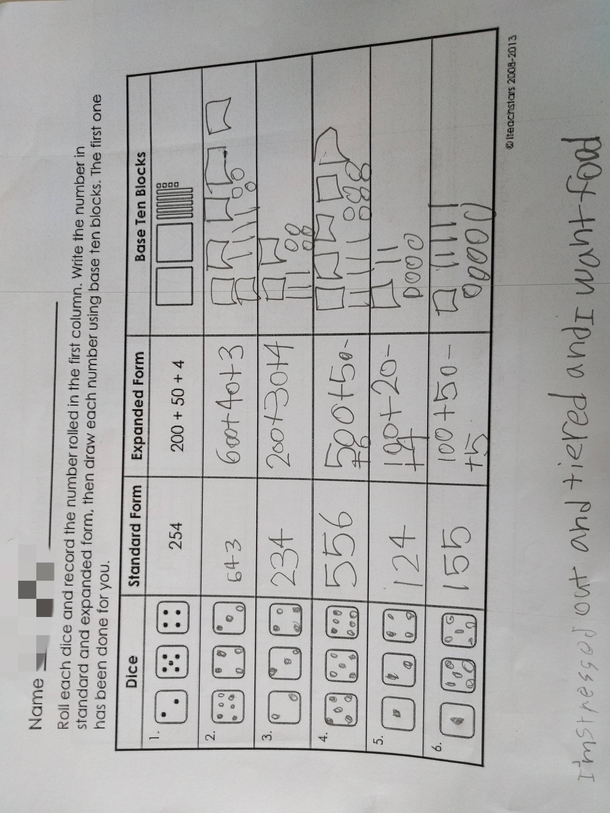 Name
Roll each dice and record the number rolled in the first column. Write the number in
standard and expanded form, then draw each number using base ten blocks. The first one
has been done for you.
Dice Standard Form Expanded Form Base Ten Blocks
1. 254 200 + 50 + 4
2. 643 600+40+3
3. 234 200+30+4
4. 556 500+50-
+6
5. 124 100+20-
+4
6. 155 100+50-
+5
©Iteachstars 2008-2013
I'm stressed out and tiered and I want food